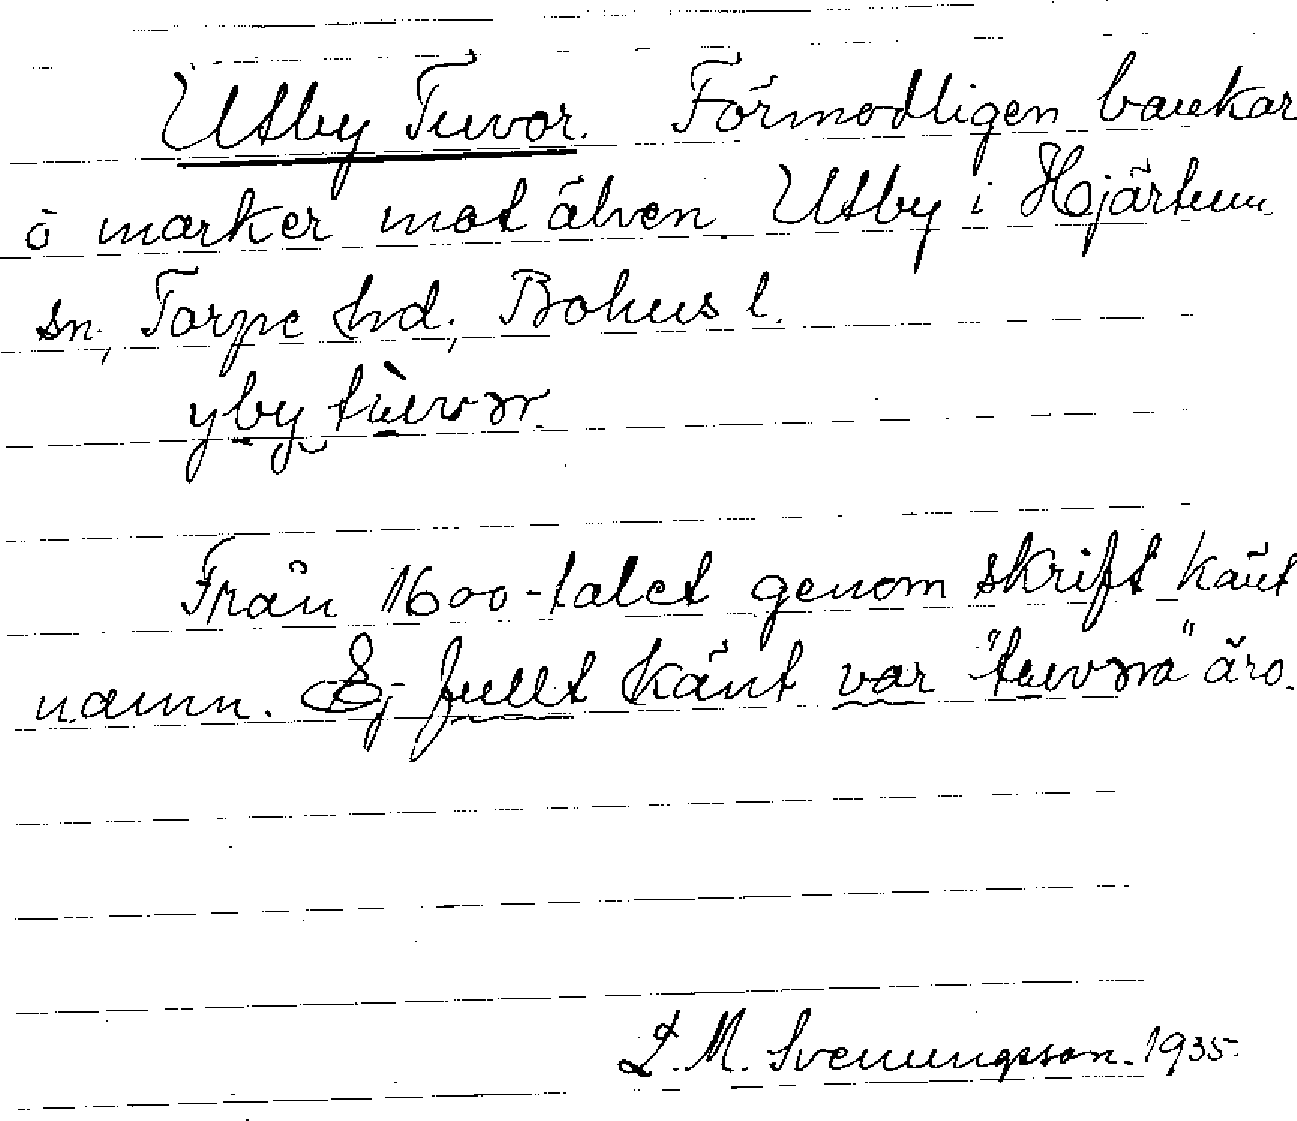 Utby Tuvor. Förmodligen bankar
o marker mot älven Utby i Hjärtum
sn, Torpe hd, Bohus l.
yby tùvər.
Från 1600-talet genom skrift känt
namn. Ej fullt känt var "tuvəna" äro.
L. M. Svenungsson. 1935.